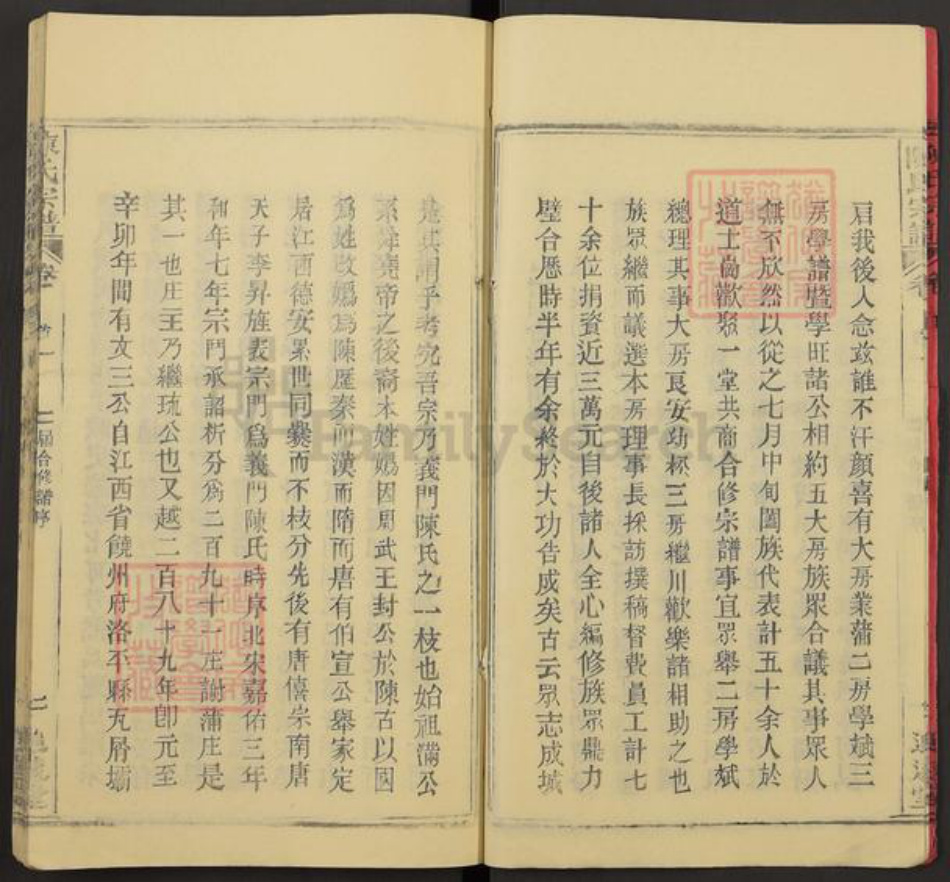 肩我後人念兹誰不汗顔喜有大房業蒲二房學斌三
房學譜暨學旺諸公相約五大房族眾合議其事眾人
無不欣然以從之七月中旬闔族代表計五十余人於
道士崗歡聚一堂共商合修宗譜事宜眾舉二房學斌
總理其事大房良安幼林三房繼川歡樂諸相助之也
族眾繼而議選本房理事長採訪撰稿督費員工計七
十余位捐資近三萬元自後諸人全心編修族眾鼎力
璧合歷時半年有余終於大功告成矣古云眾志成城
是其謂乎考究吾宗乃義門陳氏之一枝也始祖滿公
系舜堯帝之後裔本姓媯因周武王封公於陳古以國
爲姓改媯爲陳歷秦而漢而隋而唐有伯宣公舉家定
居江西德安累世同爨而不枝分先後有唐僖宗南唐
天子李昇旌表宗門爲義門陳氏時序北宋嘉佑三年
和年七年宗門承詔析分爲二百九十一庄謝蒲庄是
其一也庄主乃繼琉公也又越二百八十九年卽元至
辛卯年間有文三公自江西省饒州府洛平縣瓦屑壩
陳氏宗譜
卷
一
合修譜序
FamilySearch